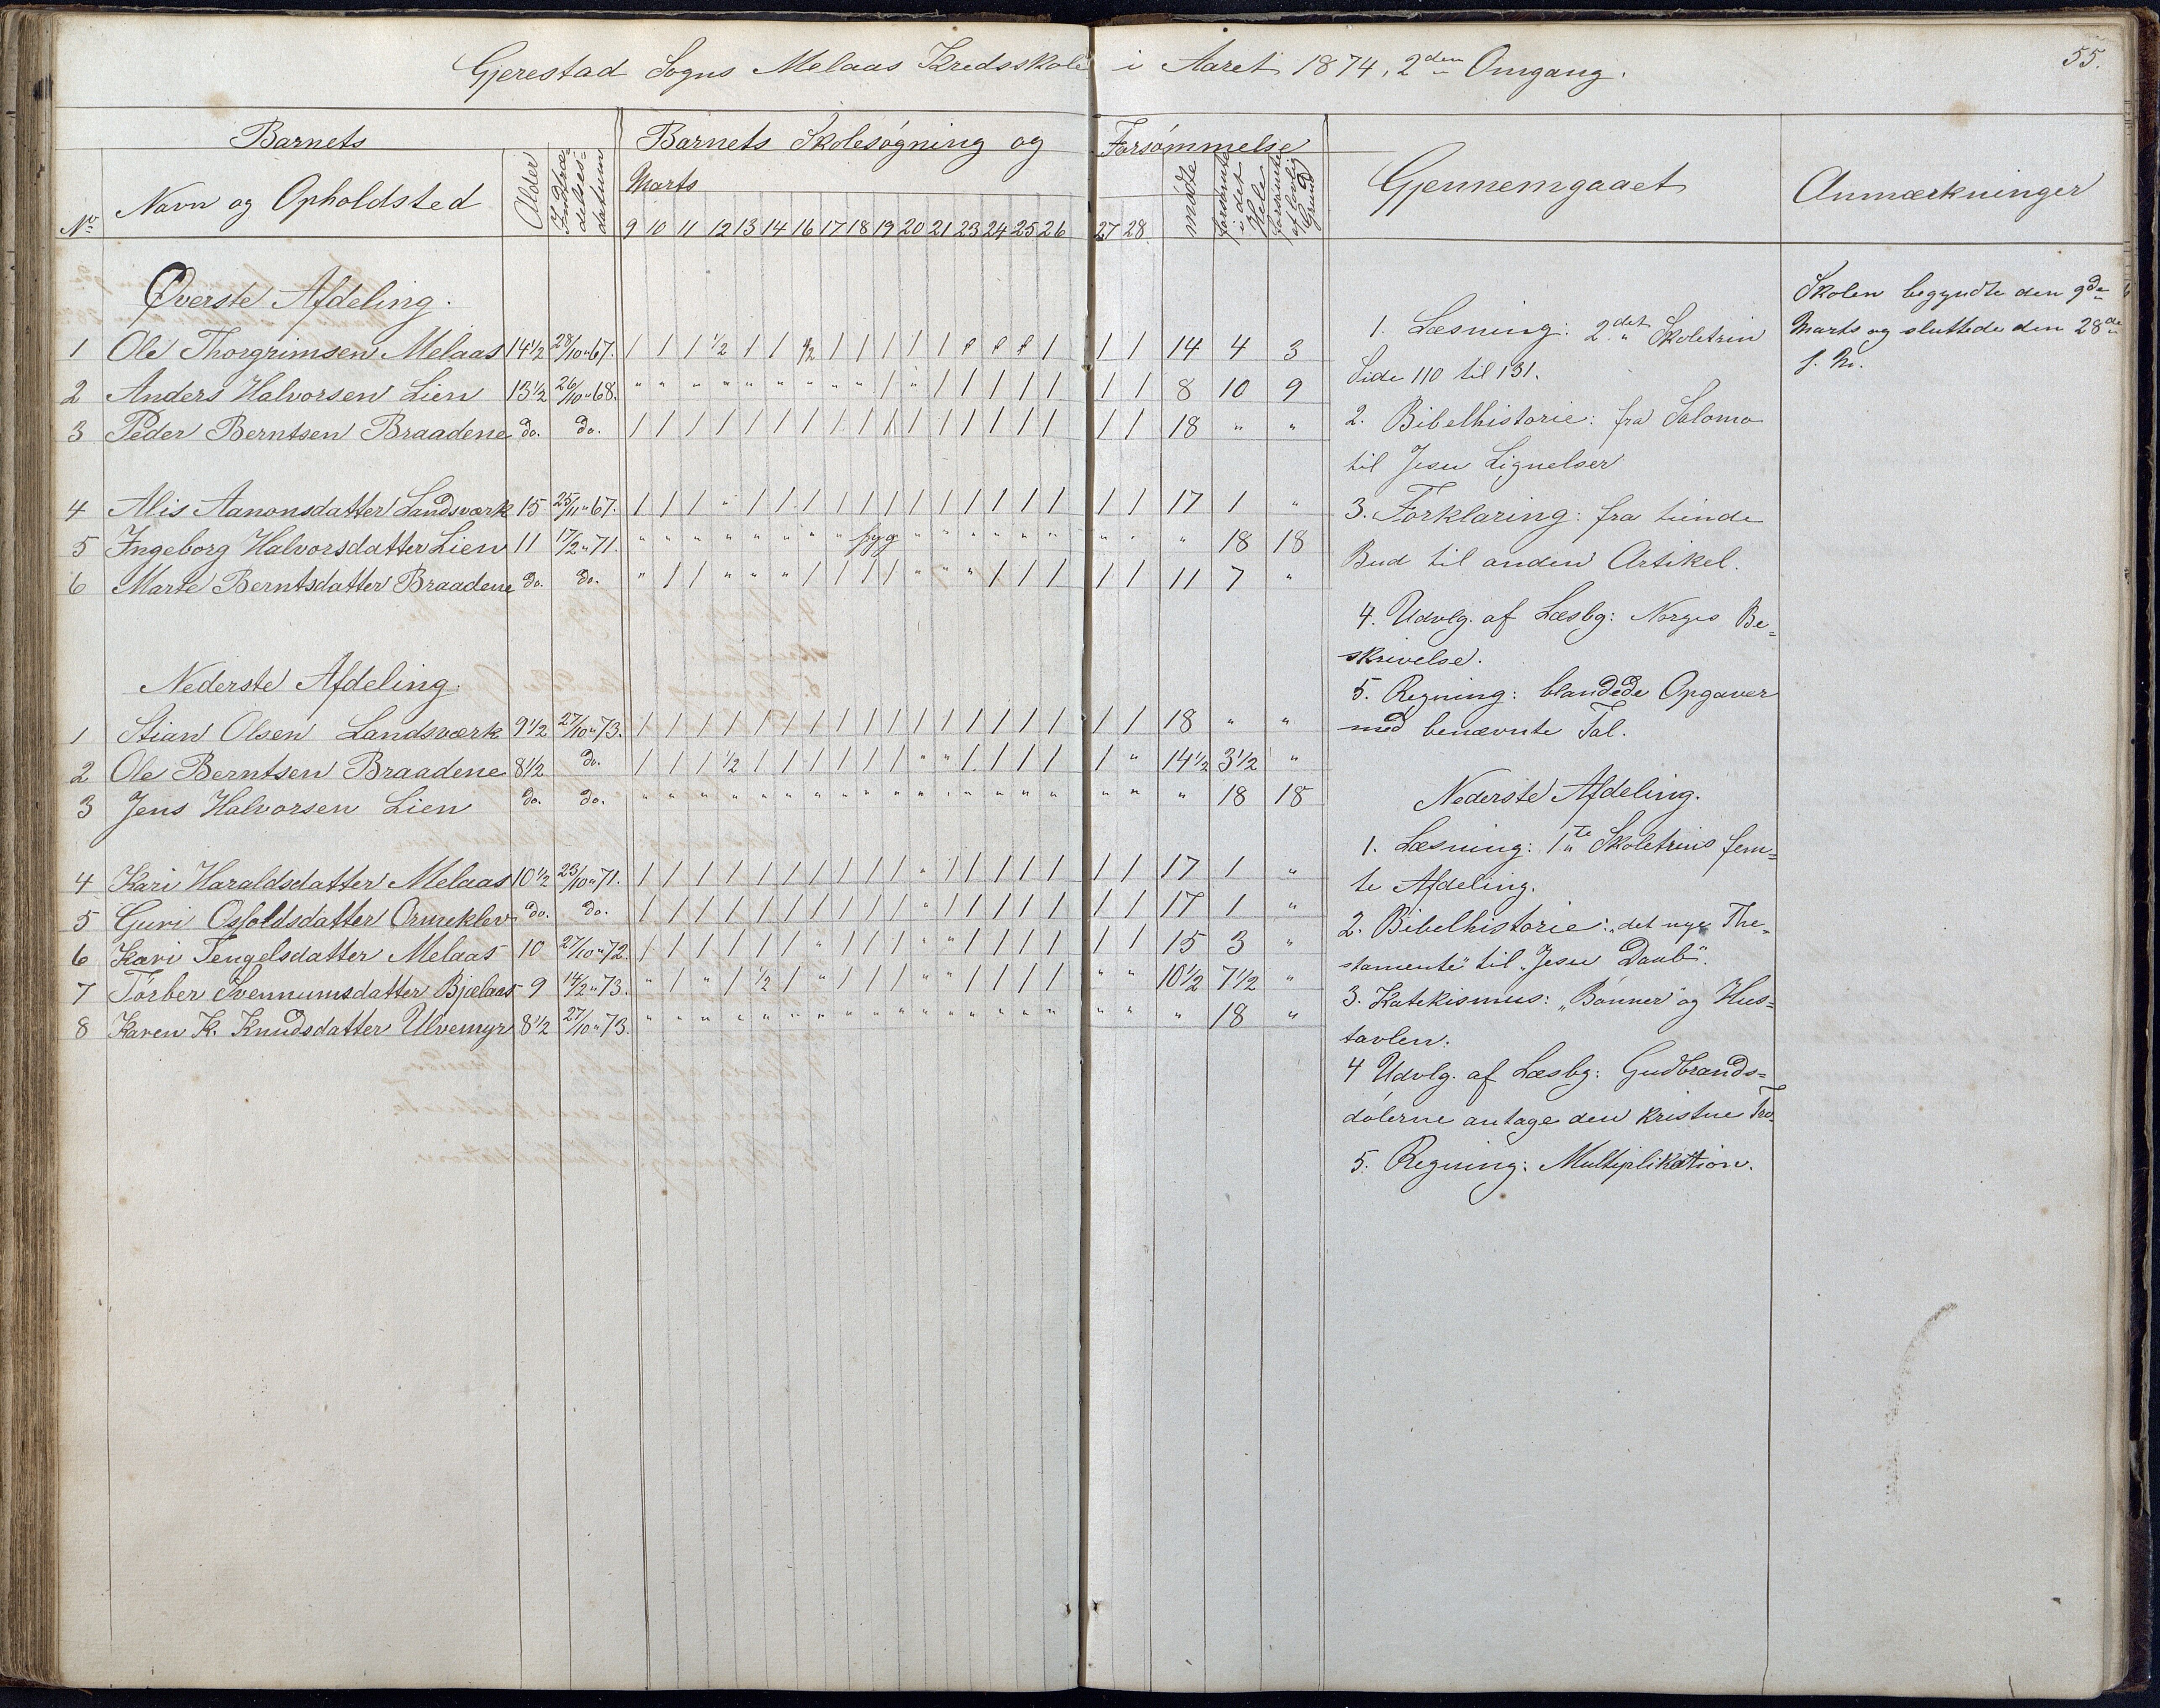 Gjerestad Sogns Melaas Kredsskole i Aaret 1874, 2den Omgang.
55.
Barnets
Barnets Skolesøgning og Forsømmelse
No
Navn og Opholdsted
Alder
Indtrædelsesdatum
Marts
9 10 11 12 13 14 16 17 18 19 20 21 23 24 25 26 27 28
mødte
forsømte i det Hele
forsømte af lovlig Grund
Gjennemgaaet
Anmærkninger
Øverste Afdeling.
1 Ole Thorgrimsen Melaas 14½ 28/10 " 67. / / / ½ / / ½ / / / / / f f f / / / 14 4 3
2 Anders Halvorsen Lien 13½ 26/10 " 68. " " " " " " " " " / " / / / / / / / 8 10 9
3 Peder Berntsen Braadene do. do. / / / / / / / / / / / / / / / / / / 18 " "
4 Alis Aanonsdatter Landsværk 15 25/11 " 67. / / / " / / / / / / / / / / / / / / 17 1 "
5 Ingeborg Halvorsdatter Lien 11 17/2 " 71. " " " " " " " " syg " " " " " " " " " 18 18
6 Marte Berntsdatter Braadene do. do. " / / " " " / / / / " " " / / / / / 11 7 "
Nederste Afdeling.
1 Stian Olsen Landsværk 9½ 27/10 " 73. / / / / / / / / / / / / / / / / / / 18 " "
2 Ole Berntsen Braadene 8½ do. / / / ½ / / / / / / " " / / / / / " 14½ 3½ "
3 Jens Halvorsen Lien do. do. " " " " " " " " " " " " " " " " " " " 18 18
4 Kari Haraldsdatter Melaas 10½ 23/10 " 71. / / / / / / / / / / " / / / / / / / 17 1 "
5 Guri Osfoldsdatter Ormeklev do. do. / / / / / / / / / / " / / / / / / / 17 1 "
6 Kari Tengelsdatter Melaas 10 27/10 " 72. / / / / / / " / / / " " / / / / / / 15 3 "
7 Torber Svennumsdatter Bjælaas 9 14/2 " 73. " / " / ½ / " / / / " " / / / / " " 10½ 7½ "
8 Karen K. Knudsdatter Ulvemyr 8½ 27/10 " 73. " " " " " " " " " " " " " " " " " " " 18 "
1. Læsning: 2det Skoletrin
Side 110 til 131.
2. Bibelhistorie: fra Salomo
til Jesu Lignelser
3. Forklaring: fra tiende
Bud til anden Artikel.
4. Udvlg. af Læsbg: Norges Be=
skrivelse.
5. Regning: blandede Opgaver
med benævnte Tal.
Nederste Afdeling.
1. Læsning: 1te Skoletrins fem=
te Afdeling.
2. Bibelhistorie: „det nye The=
stamente" til „Jesu Daab".
3. Katekismus: „Bønner" og Hus=
tavlen.
4 Udvlg. af Læsbg: Gudbrands=
dølerne antage den kristne Tro.
5. Regning: Multiplikation.
Skolen begyndte den 9de
Marts og sluttede den 28de
s. M.